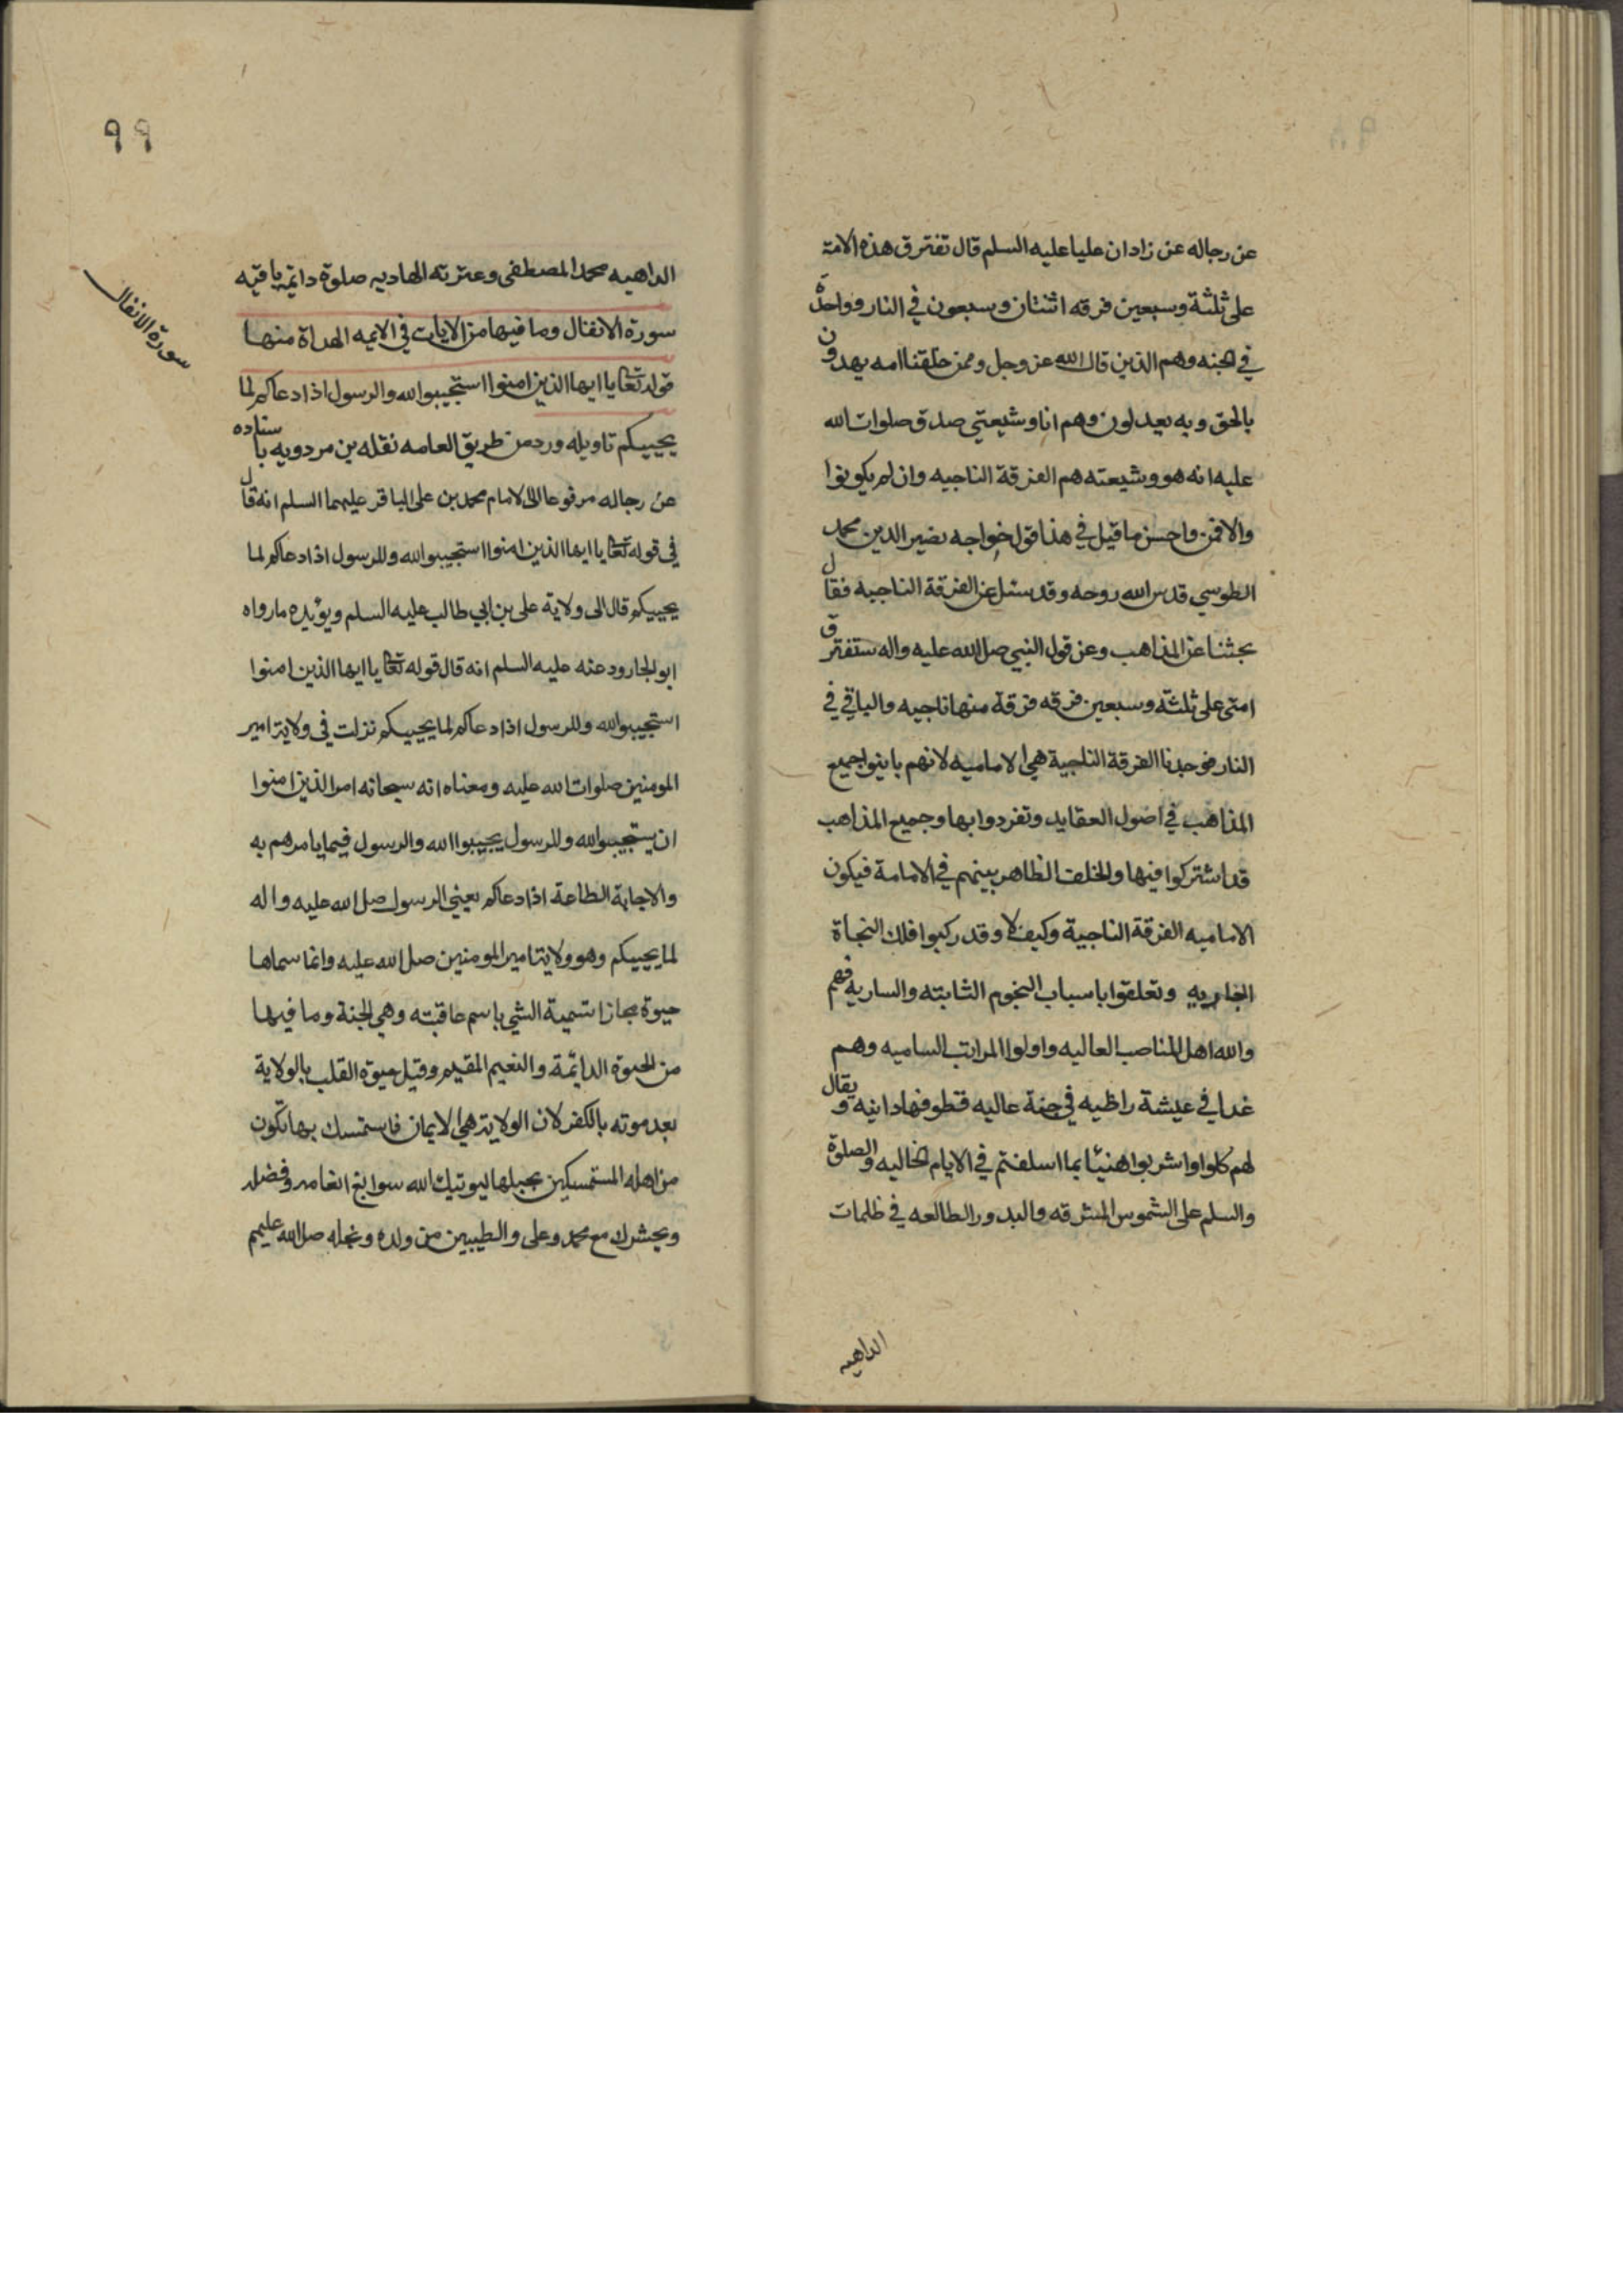 عن رجاله عن زادان عليا عليه السلم قال تفترق هذه الامة
على ثلثة وسبعين فرقه اثنتان وسبعون في النار وواحدة
في الجنه وهم الذين قال الله عز وجل وممن خلقنا امه يهدون
بالحق وبه يعدلون وهم انا وشيعتي صدق صلوات الله
عليه انه هو وشيعته هم الفرقة الناجيه وان لم يكونوا
والا فمن واحسن ما قيل في هذا قول خواجه نصير الدين محمد
الطوسي قدس الله روحه وقد سئل عن الفرقة الناجيه فقال
بحثنا عن المذاهب وعن قول النبي صل الله عليه واله ستفترق
امتى على ثلثة وسبعين فرقه فرقة منها ناجيه والباقي في
النار فوجدنا الفرقة الناجية هي الاماميه لانهم باينوا جميع
المذاهب في اصول العقايد وتفردوا بها وجميع المذاهب
قد اشتركوا فيها والخلف الظاهر بينهم في الامامة فيكون
الاماميه الفرقة الناجية وكيف لا وقد ركبوا فلك النجاة
الجاريه وتعلقوا باسباب النجوم الثابته والساريه فهم
والله اهل المناصب العاليه واولوا المراتب الساميه وهم
غدا في عيشة راظيه في جنة عاليه قطوفها دانيه ويقال
لهم كلوا واشربوا هنيئا بما اسلفتم في الايام الخاليه والصلوة
والسلم على الشموس المشرقه والبدور الطالعه في ظلمات
الداهيه
٩٩
سورة الانفال
الداهيه محمد المصطفى وعترته الهاديه صلوة دائمة باقيه
سورة الانفال وما فيها من الايات في الايمه الهداة منها
قوله تعا يا ايها الذين امنوا استجيبوا لله والرسول اذا دعاكم لما
يحييكم تاويله ورد من طريق العامه نقله بن مردويه باسناده
عن رجاله مرفوعا الى الامام محمد بن على الباقر عليهما السلم انه قال
في قوله تعا يا ايها الذين امنوا استجيبوا لله وللرسول اذا دعاكم لما
يحييكم قال الى ولاية على بن ابي طالب عليه السلم ويؤيده ما رواه
ابو الجارود عنه عليه السلم انه قال قوله تعا يا ايها الذين امنوا
استجيبوا لله وللرسول اذا دعاكم لما يحييكم نزلت في ولاية امير
المومنين صلوات الله عليه ومعناه انه سبحانه امر الذين امنوا
ان يستجيبوا لله وللرسول يجيبوا الله والرسول فيما يامرهم به
والاجابة الطاعة اذا دعاكم يعني الرسول صل الله عليه واله
لما يحييكم وهو ولاية امير المومنين صل الله عليه وانما سماها
حيوة مجازا تسمية الشي باسم عاقبته وهي الجنة وما فيها
من الحيوة الدائمة والنعيم المقيم وقيل حيوة القلب بالولاية
بعد موته بالكفر لان الولاية هي الايمان فاستمسك بها تكون
من اهله المستمسكين بحبلها ليوتيك الله سوابغ انعامه وفضله
ويحشرك مع محمد وعلى والطيبين من ولده ونجله صل الله عليهم